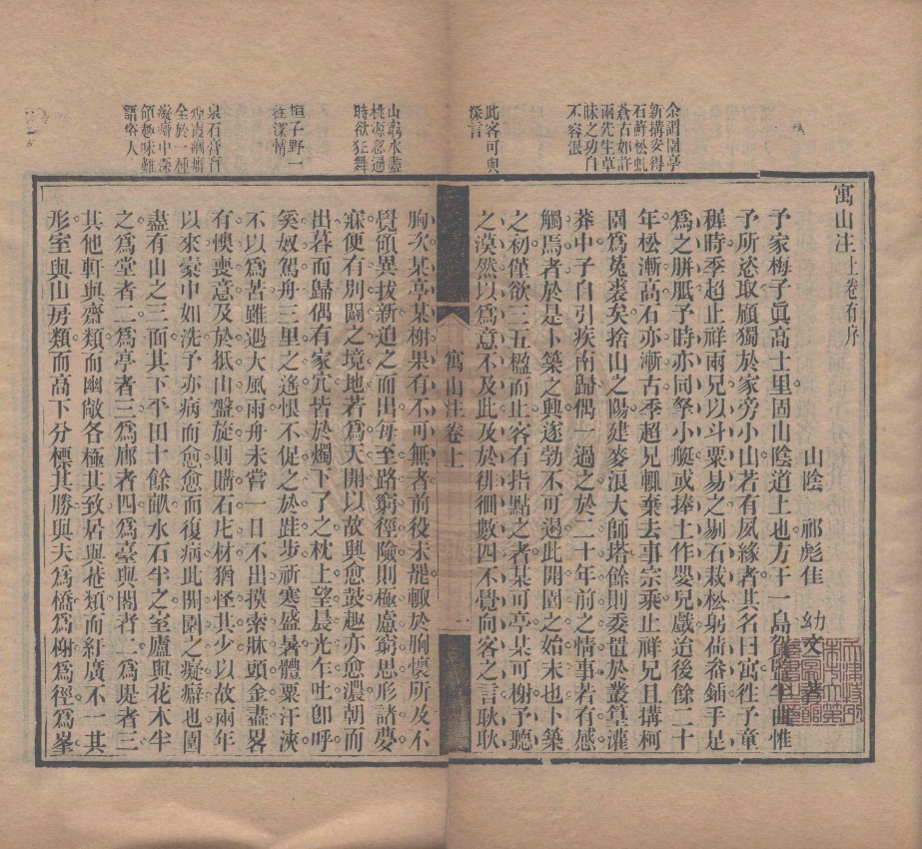 余謂園亭
新搆安得
石蘚松虬
蒼古如許
兩先生草
昧之功自
不容泯
此客可與
深言
寓山注上卷有序
山陰 祁彪佳 幼文 著
予家梅子眞高士里固山陰道上也方干一島賀監半曲惟
予所恣取顧獨於家旁小山若有夙緣者其名曰寓徃予童
穉時季超止祥兩兄以斗粟易之剔石栽松躬荷畚鍤手足
為之胼胝予時亦同拏小艇或捧土作嬰兒戲迨後餘二十
年松漸高石亦漸古季超兄輒棄去事宗乘止祥兄且搆柯
園為菟裘矣捨山之陽建麥浪大師塔餘則委置於叢篁灌
莽中予自引疾南歸偶一過之於二十年前之情事若有感
觸焉者於是卜築之興遂勃不可遏此開園之始末也卜築
之初僅欲三五楹而止客有指點之者某可亭某可榭予聽
之漠然以為意不及此及於徘徊數四不覺向客之言耿耿
寓山注卷上
一
山窮水盡
桃源忽過
時欲狂舞
桓子野一
往深情
泉石膏肓
煙霞痼癖
全於一種
癡癖中深
領趣味難
語俗人
胸次某亭某榭果有不可無者前役未罷輒於胸懷所及不
覺領異拔新迫之而出每至路窮徑險則極慮窮思形諸夢
寐便有別闢之境地若為天開以故興愈鼓趣亦愈濃朝而
出暮而歸偶有家冗皆於燭下了之枕上望晨光乍吐卽呼
奚奴駕舟三里之遙恨不促之於跬步祈寒盛暑體粟汗浹
不以為苦雖遇大風雨舟未嘗一日不出摸索牀頭金盡畧
有懊喪意及於抵山盤旋則購石庀材猶怪其少以故兩年
以來橐中如洗予亦病而愈愈而復病此開園之癡癖也園
盡有山之三面其下平田十餘畝水石半之室廬與花木半
之為堂者二為亭者三為廊者四為臺與閣者二為堤者三
其他軒與齋類而幽敞各極其致居與菴類而紆廣不一其
形室與山房類而高下分標其勝與夫為橋為榭為徑為峯